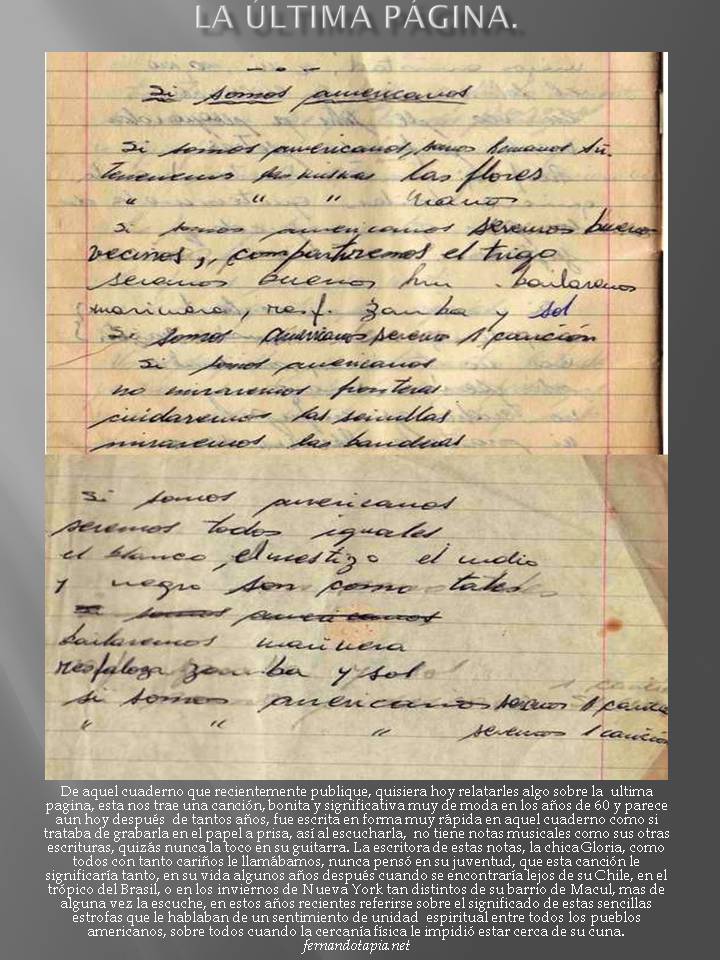 LA ÚLTIMA PÁGINA.
Si somos americanos
Si somos americanos, somos hermanos Sñ.
tenemos las mismas las flores
" " " manos
Si somos americanos seremos buenos
vecinos,, compartiremos el trigo
seremos buenos hm . bailaremos
marinera, resf. zamba y sol
Si somos Americanos seremos 1 canción
Si somos americanos
no miraremos fronteras
cuidaremos las semillas
miraremos las banderas
Si somos americanos
seremos todos iguales
el blanco, el mestizo el indio
y negro son como tales
Si somos americanos
bailaremos marinera
resfaloza zamba y sol
si somos americanos seremos 1 canción
" " " seremos 1 canción
De aquel cuaderno que recientemente publique, quisiera hoy relatarles algo sobre la ultima
pagina, esta nos trae una canción, bonita y significativa muy de moda en los años de 60 y parece
aun hoy después de tantos años, fue escrita en forma muy rápida en aquel cuaderno como si
trataba de grabarla en el papel a prisa, así al escucharla, no tiene notas musicales como sus otras
escrituras, quizás nunca la toco en su guitarra. La escritora de estas notas, la chica Gloria, como
todos con tanto cariños le llamábamos, nunca pensó en su juventud, que esta canción le
significaría tanto, en su vida algunos años después cuando se encontraría lejos de su Chile, en el
trópico del Brasil, o en los inviernos de Nueva York tan distintos de su barrio de Macul, mas de
alguna vez la escuche, en estos años recientes referirse sobre el significado de estas sencillas
estrofas que le hablaban de un sentimiento de unidad espiritual entre todos los pueblos
americanos, sobre todos cuando la cercanía física le impidió estar cerca de su cuna.
fernandotapia.net